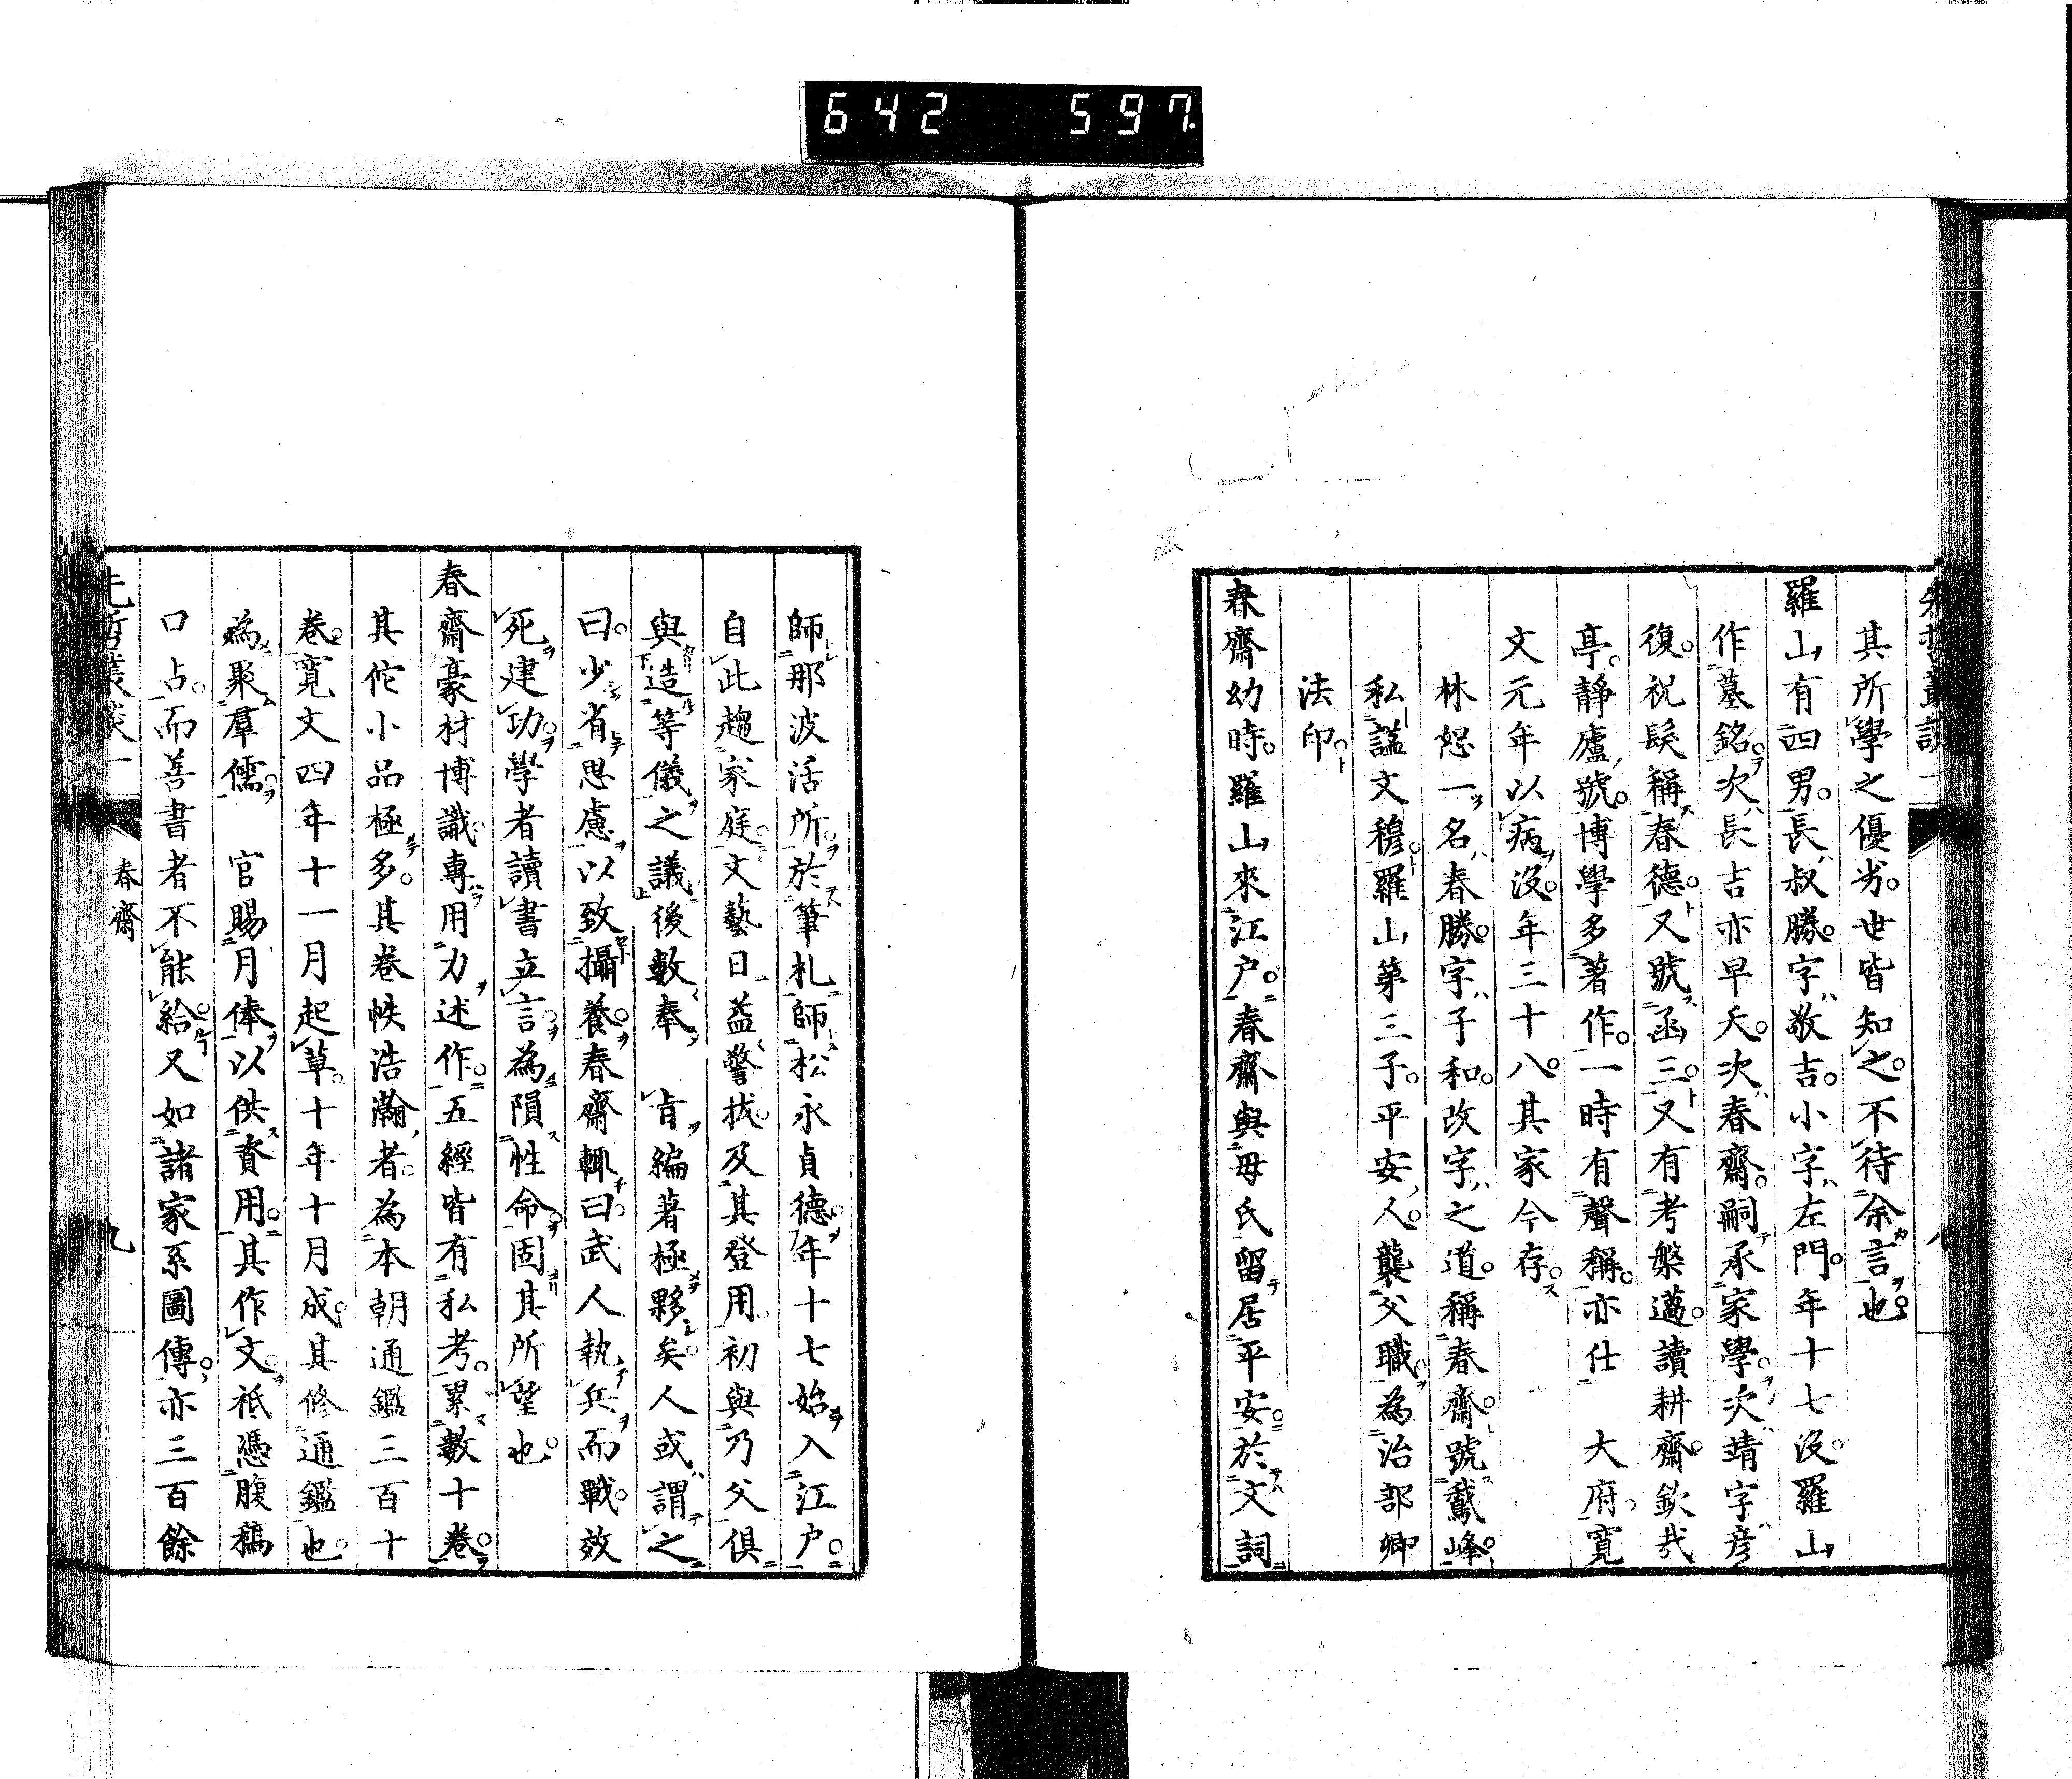 642 597.
先哲叢談一
八
其所學之優劣世皆知之不待余言也
羅山有四男長叔勝字敬吉小字左門年十七沒羅山
作墓銘次長吉亦早夭次春齋嗣承家學次靖字彦
復祝髮稱春德又號函三又有考槃邁讀耕齋欽哉
亭靜廬號博學多著作一時有聲稱亦仕　大府寛
文元年以病沒年三十八其家今存
林恕一名春勝字子和改字之道稱春齋號鵞峰
私謚文穆羅山第三子平安人襲父職為治部卿
法印
春齋幼時羅山來江户春齋與母氏留居平安於文詞
師那波活所於筆札師松永貞德年十七始入江户
自此趨家庭文藝日益警拔及其登用初與乃父俱
與造等儀之議後數奉　旨編著極夥矣人或謂之
曰少省思慮以致攝養春齋輒曰武人執兵而戰效
死建功學者讀書立言為隕性命固其所望也
春齋豪材博識專用力述作五經皆有私考累數十卷
其佗小品極多其卷帙浩瀚者為本朝通鑑三百十
卷寛文四年十一月起草十年十月成其修通鑑也
為聚羣儒　官賜月俸以供資用其作文祇憑腹稿
口占而善書者不能給又如諸家系圖傳亦三百餘
先哲叢談一
春齋
九